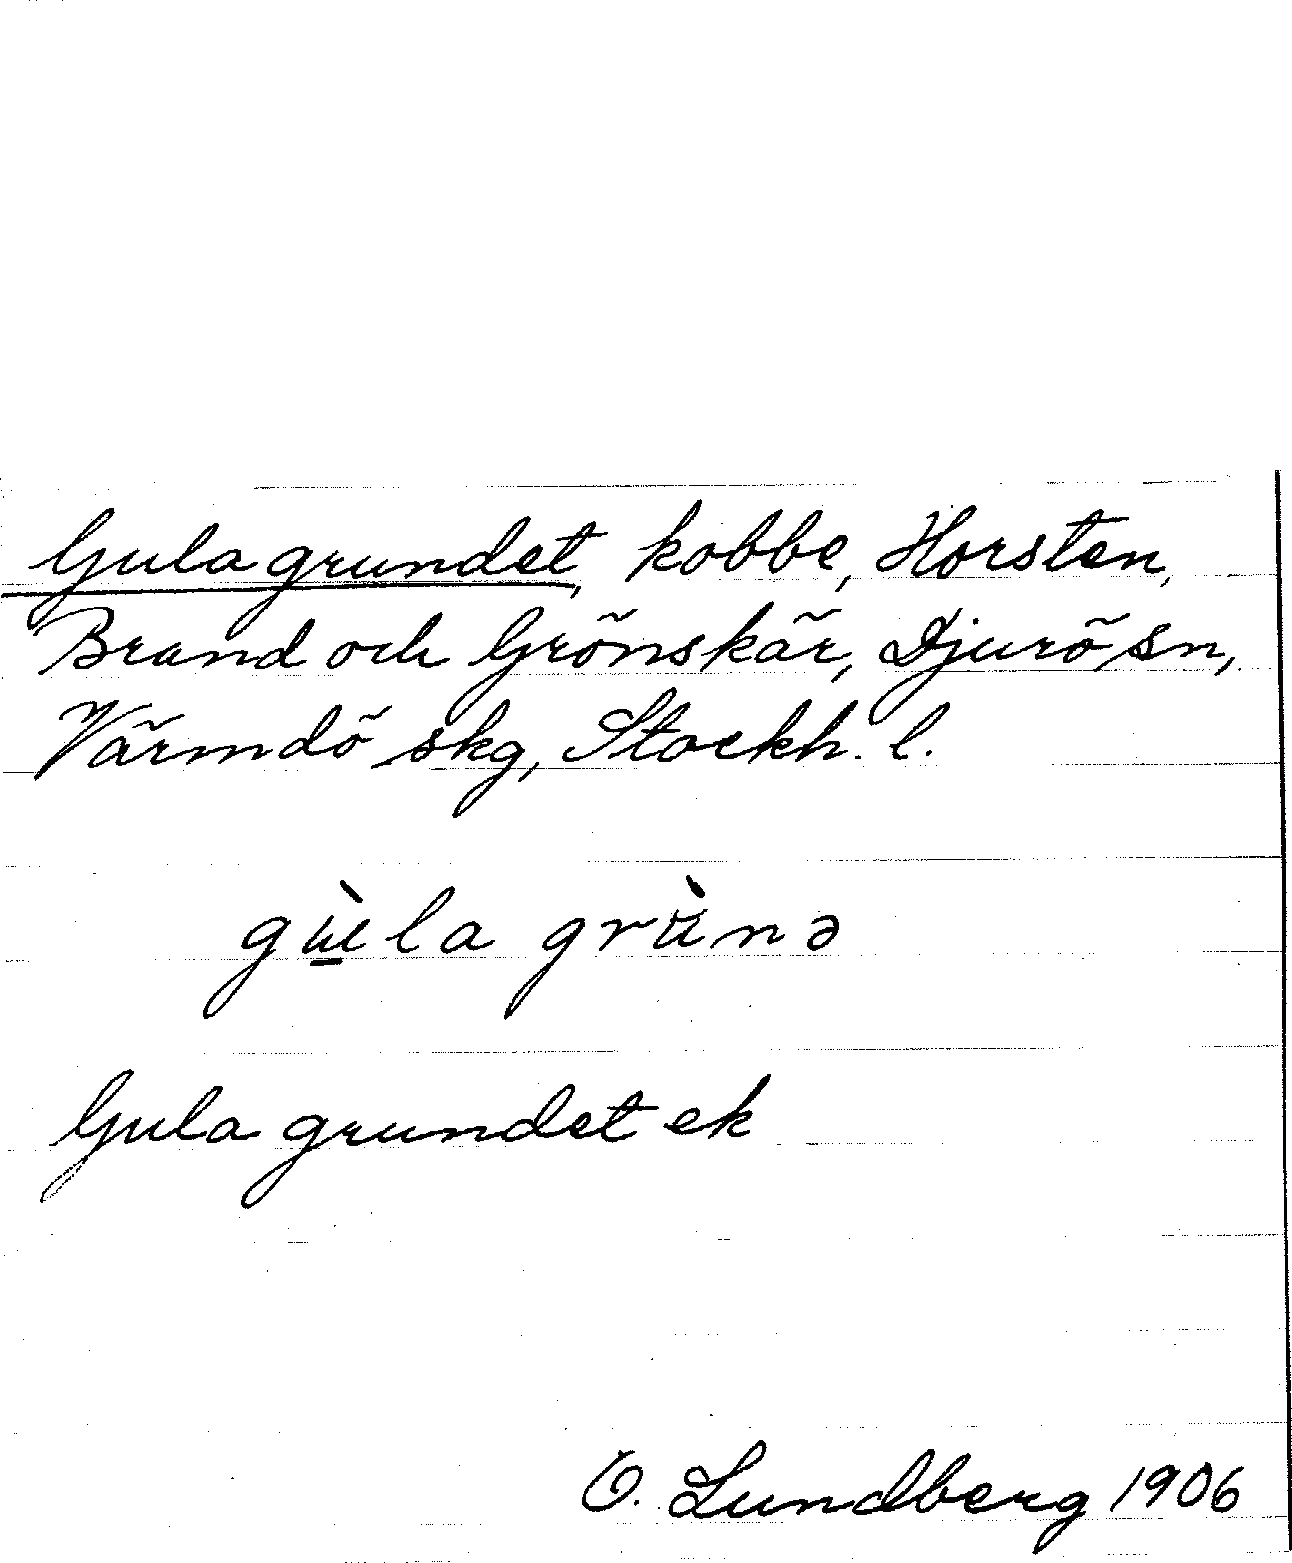 Gula grundet, kobbe, Horsten,
Brand och Grönskär, Djurö sn,
Värmdö skg, Stockh. l.
gɯ̲̀la grɯ̀nə
Gula grundet ek
O. Lundberg 1906